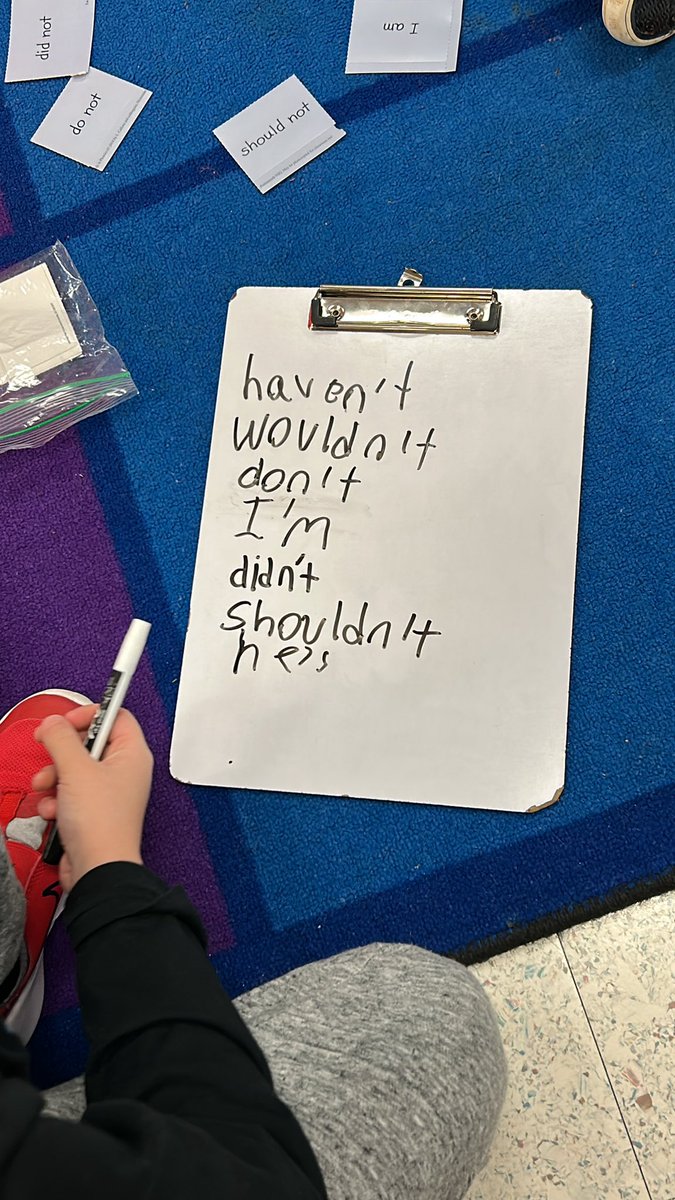 did not
do not
should not
I am
haven't
wouldn't
don't
I'm
didn't
shouldn't
he's